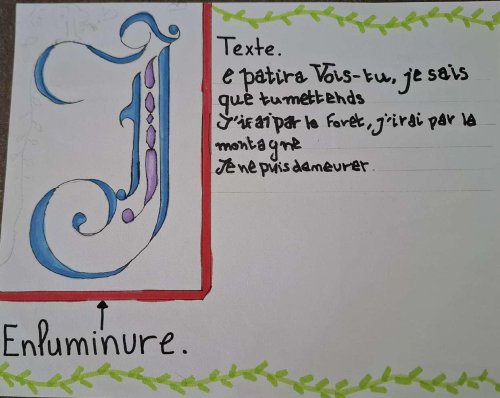 J
Texte.
e patira Vois-tu, je sais
que tu mettends
J'irai par la Foret, j'irai par la
montagne
Je ne puis demeurer.
Enluminure.